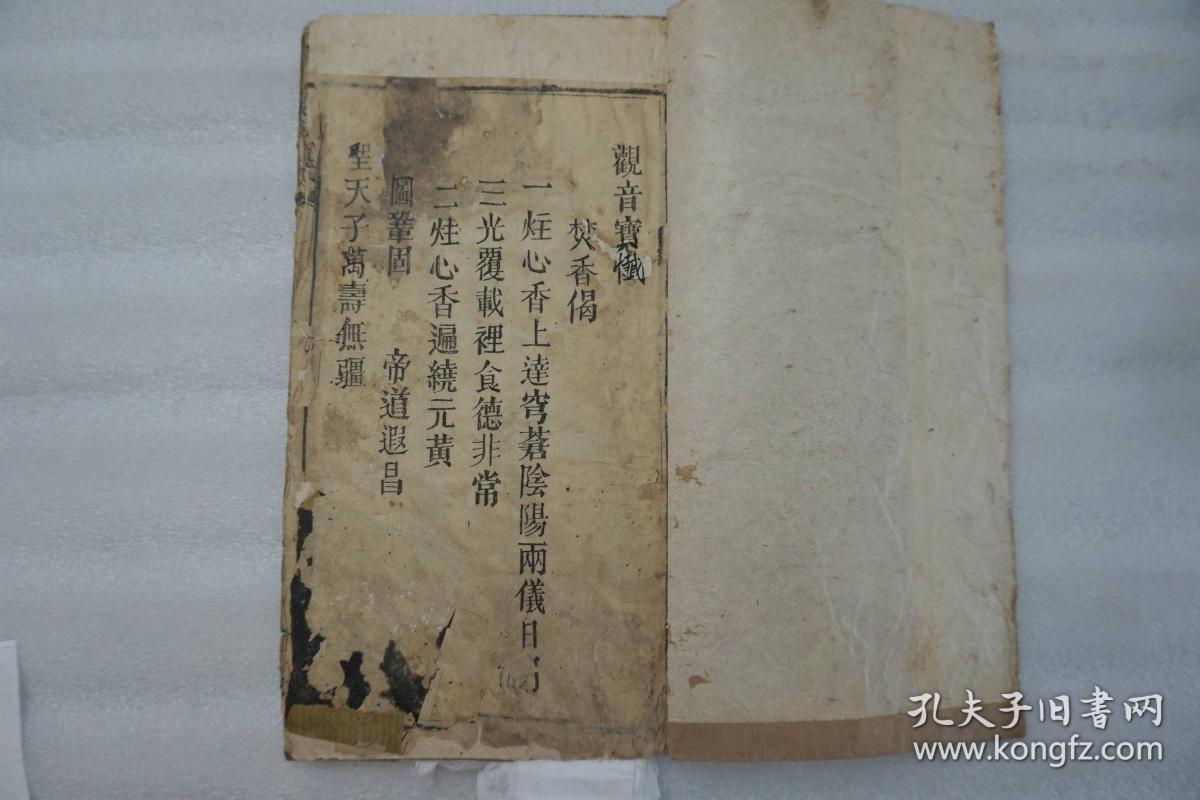 觀音寶懺
焚香偈
一炷心香上達穹蒼陰陽兩儀日
三光覆載裡食德非常
二炷心香遍繞元黃
圖鞏固　帝道遐昌
聖天子萬壽無疆
孔夫子旧書网
www.kongfz.com